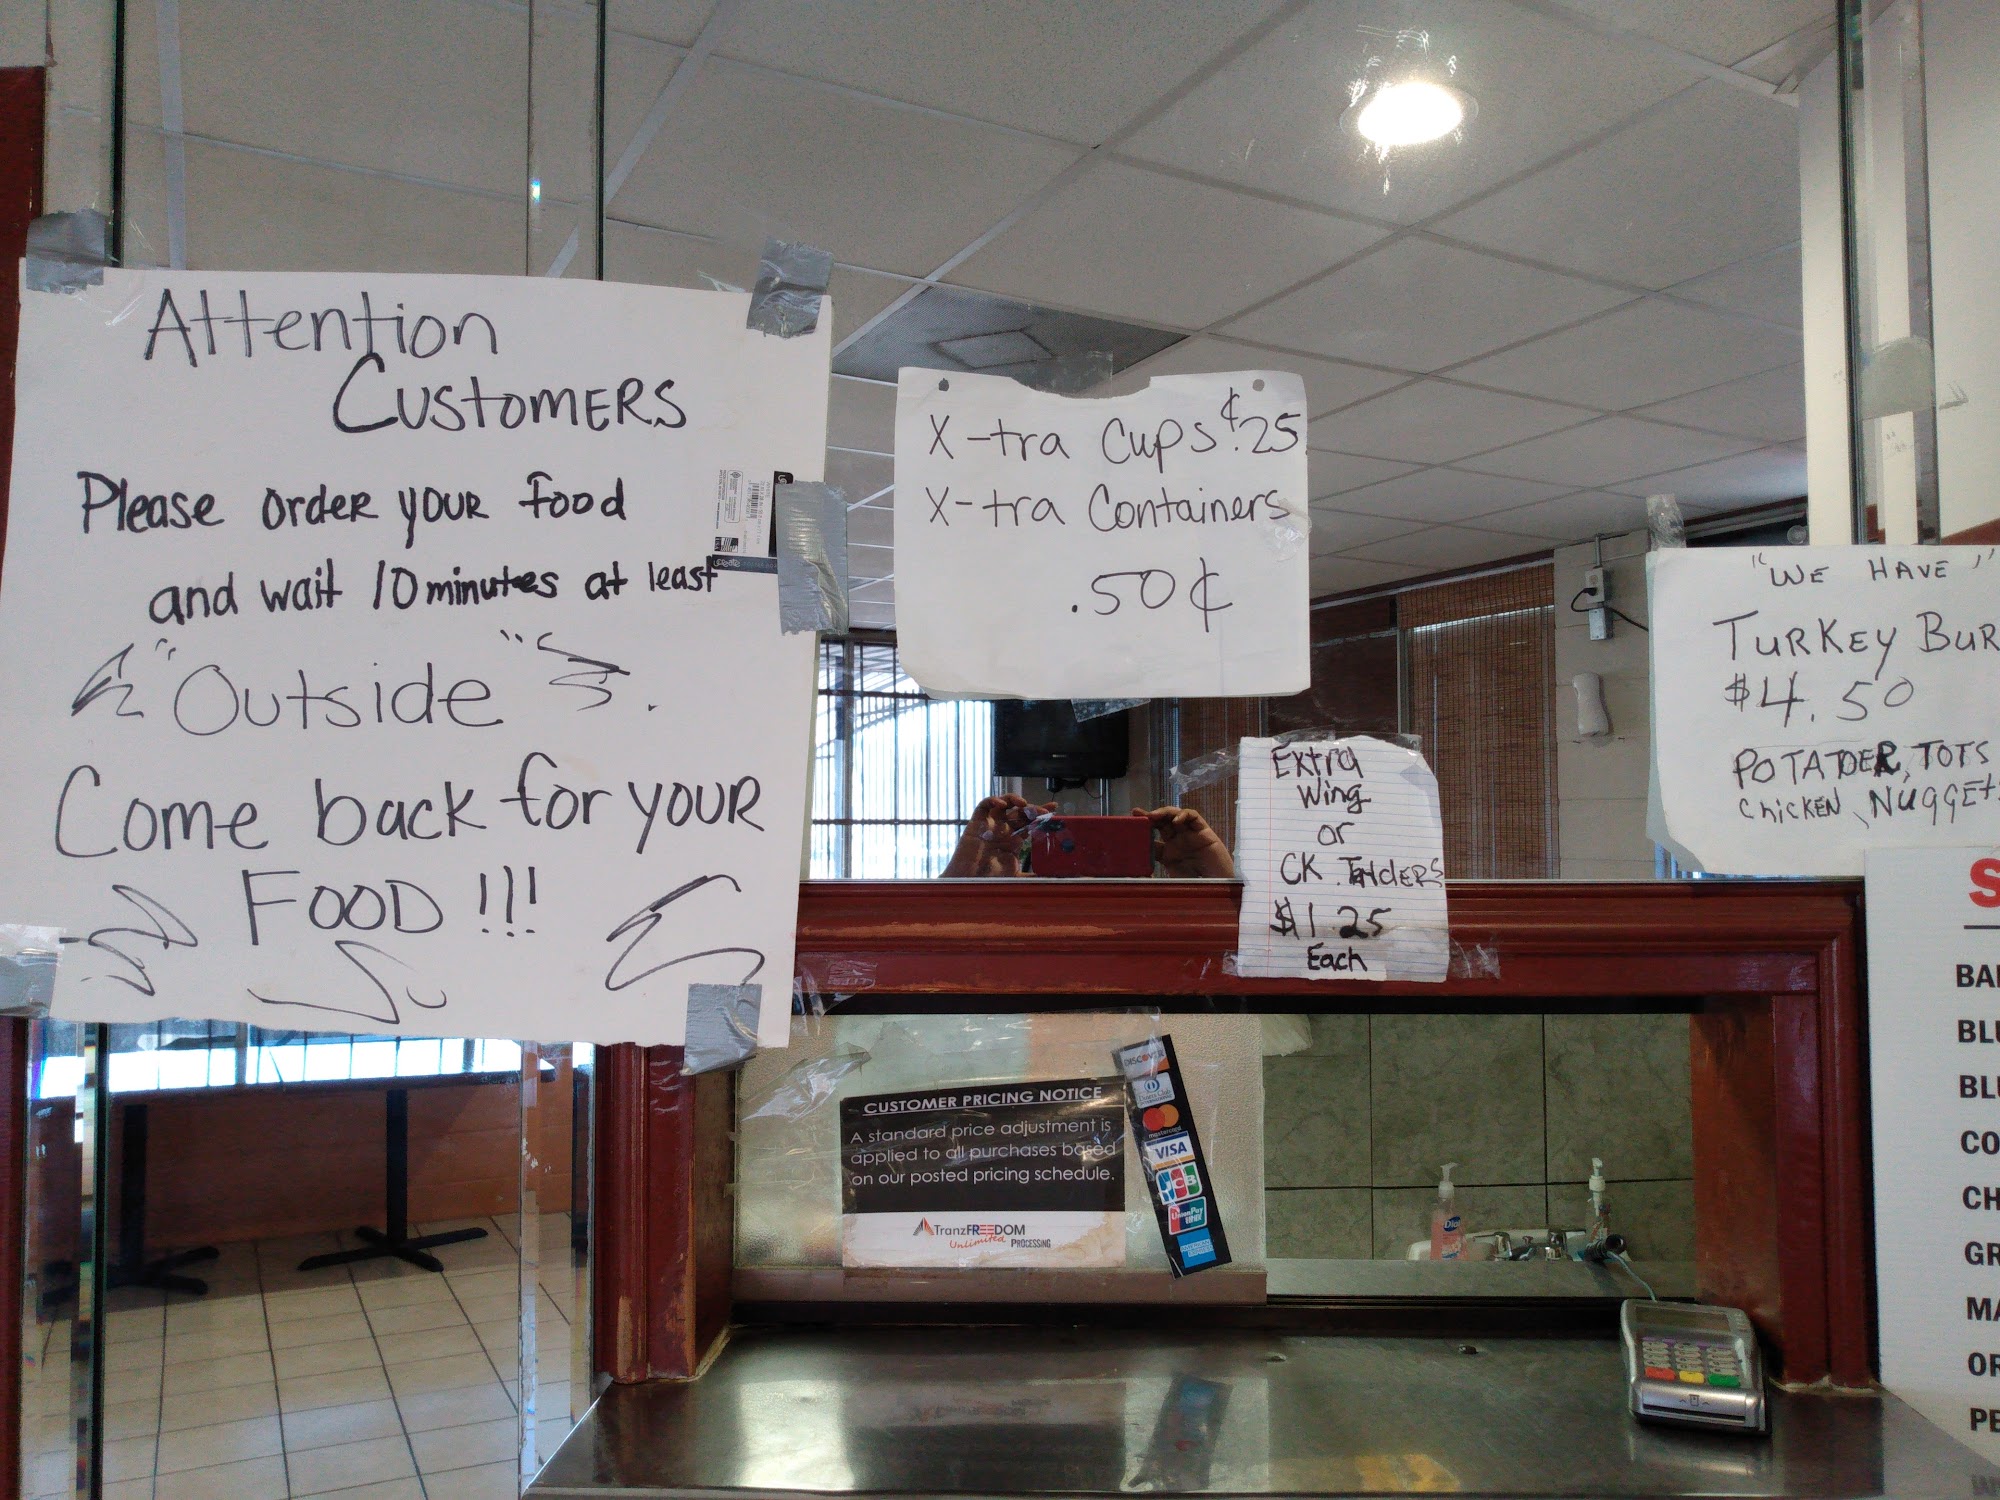 Attention
Customers
Please order your food
and wait 10 minutes at least
"Outside".
Come back for your
Food !!!
X-tra Cups ¢.25
X-tra Containers
.50¢
Extra
Wing
or
CK. Tenders
$1.25
Each
"WE HAVE"
Turkey Bur
$4.50
POTATOER, TOTS
Chicken, Nuggets
S
BA
BLU
BLU
CO
CH
GR
MA
OR
PE
CUSTOMER PRICING NOTICE
A standard price adjustment is
applied to all purchases based
on our posted pricing schedule.
TranzFREEDOM
Unlimited PROCESSING
DISCOVER
Diners Club
mastercard
VISA
JCB
UnionPay
AMERICAN EXPRESS
Dial